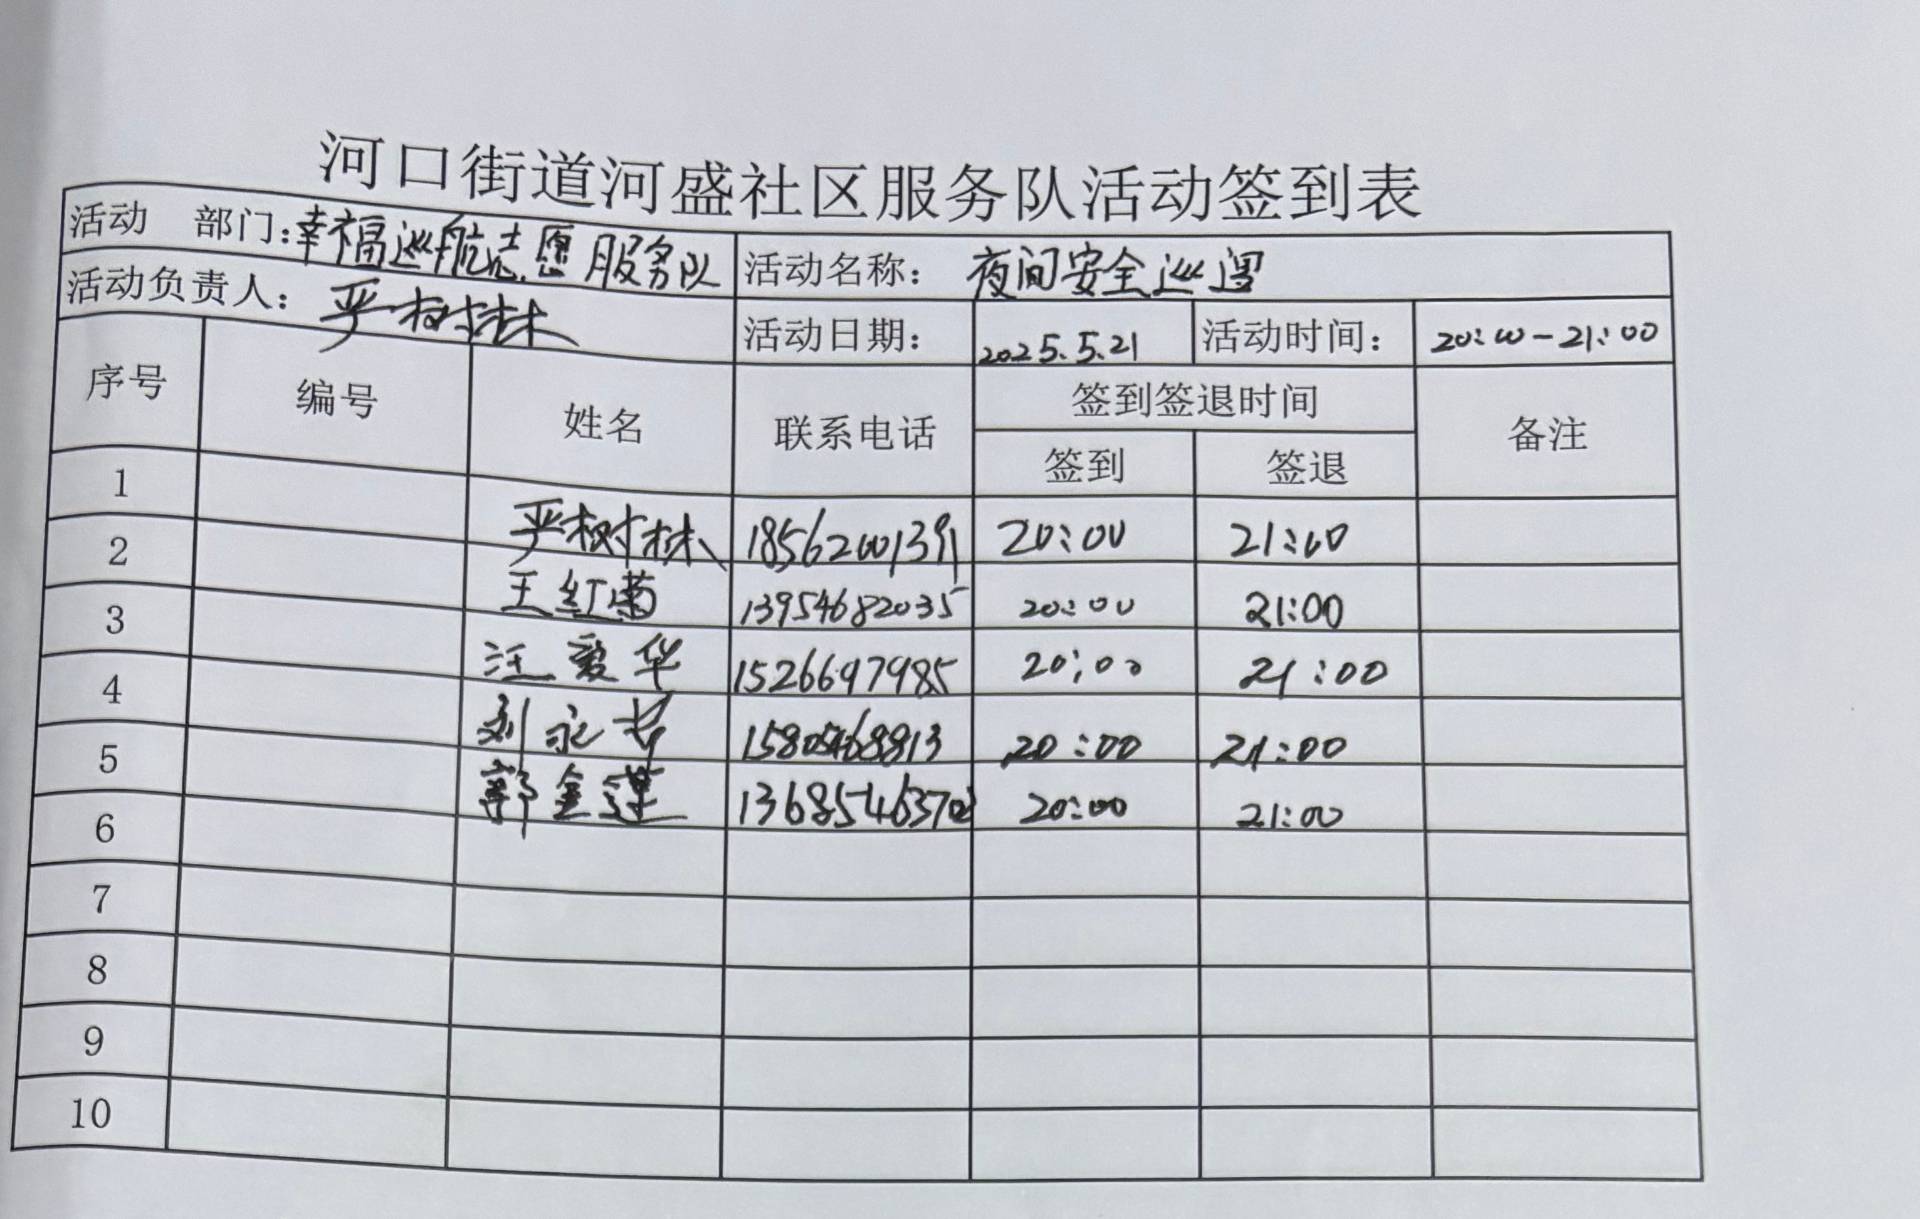 河口街道河盛社区服务队活动签到表
活动 部门:幸福巡航志愿服务队 活动名称: 夜间安全巡逻
活动负责人: 严树林 活动日期: 2025.5.21 活动时间: 20:00-21:00
序号 编号 姓名 联系电话 签到签退时间 备注
签到 签退
1 严树林 18562001391 20:00 21:00
2 王红菊 13954682035 20:00 21:00
3 汪爱华 15266497985 20:00 21:00
4 刘永 15805468813 20:00 21:00
5 郭金莲 20:00 21:00
6
7
8
9
10